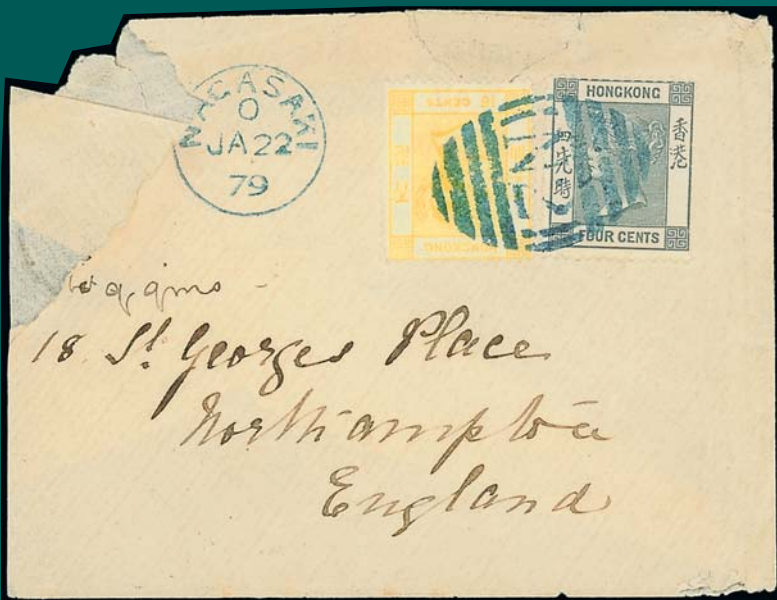 NAGASAKI
O
JA 22
79
16 CENTS
HONGKONG
HONGKONG
香港
四先時
FOUR CENTS
18 St. Georges Place
Northampton
England